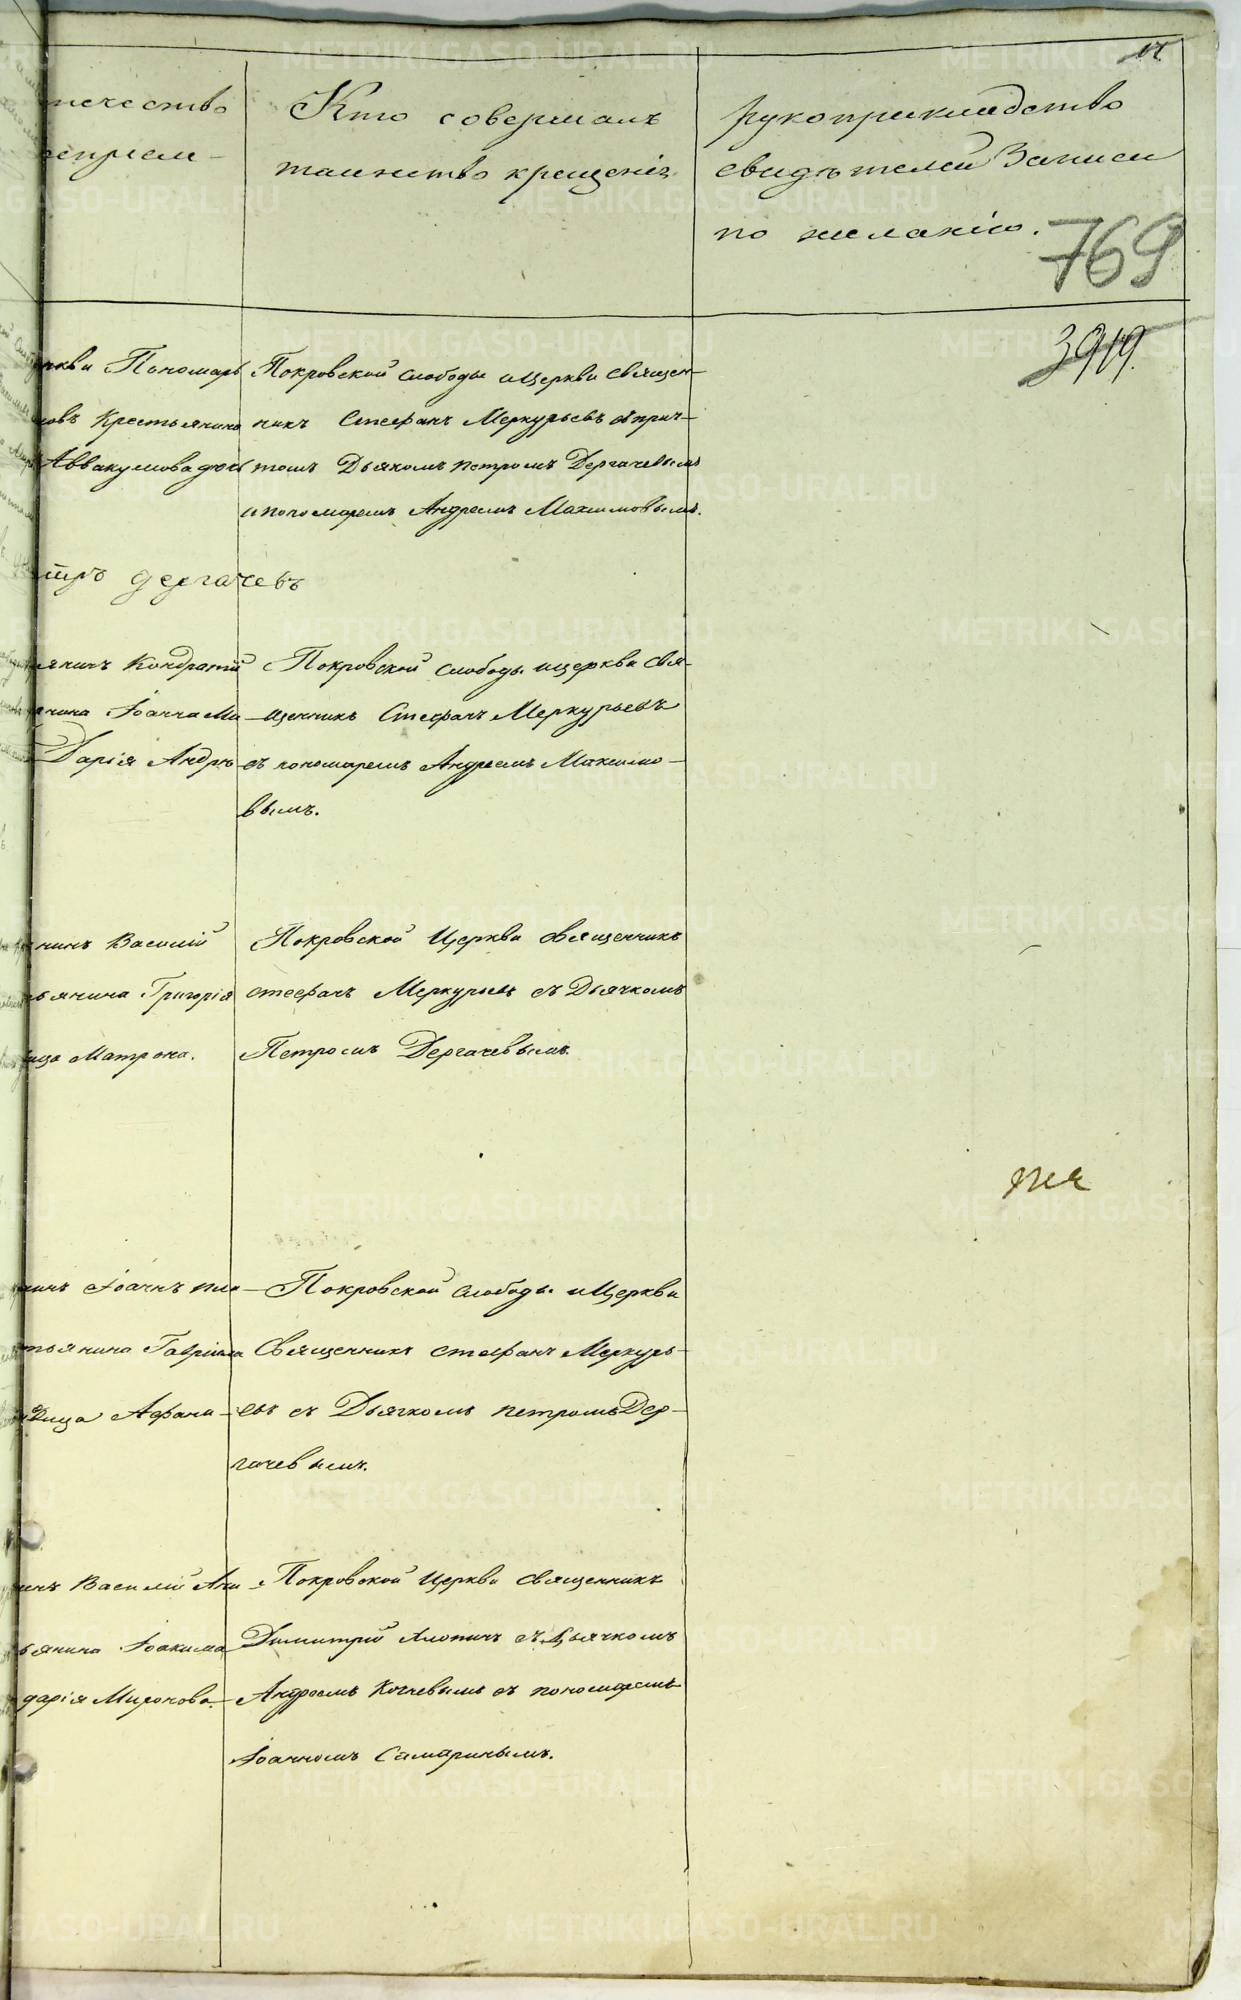 течество
Кто совершалъ
рукоприкладство
таинство крещенія
свидѣтелей Записи
по желанію.
769
3919.
ркви Пономарь
овъ Крестьянина
Аввакумова дочь
Покровской слободы и Церкви священ-
никъ Стефанъ Меркурьевъ съ прич-
томъ Дьякомъ петромъ Дергачевымъ
и пономаремъ Андреемъ Максимовымъ.
тръ дергачевъ
янинъ Кондратій
янина Іоанна Ми-
Дарія Андрѣ
Покровской слободы и церкви Свя-
щенникъ Стефанъ Меркурьевъ
съ пономаремъ Андреемъ Максимо-
вымъ.
нинъ Василій
ьянина Григорія
ица Матрона.
Покровской Церкви священникъ
стефанъ Меркурьевъ съ Дьячкомъ
Петромъ Дергачевымъ.
нинъ Іоаннъ
тьянина Гавріила
вица Афана-
Покровской слободы и Церкви
Священникъ стефанъ Меркурь-
евъ съ Дьячкомъ петромъ Дер-
гачевымъ.
инъ Василій
ьянина Іоакима
дарія Миронова.
Покровской Церкви священникъ
Димитрій съ Дьячкомъ
Андреемъ съ пономаремъ
Іоанномъ Самаринымъ.
METRIKI.GASO-URAL.RU